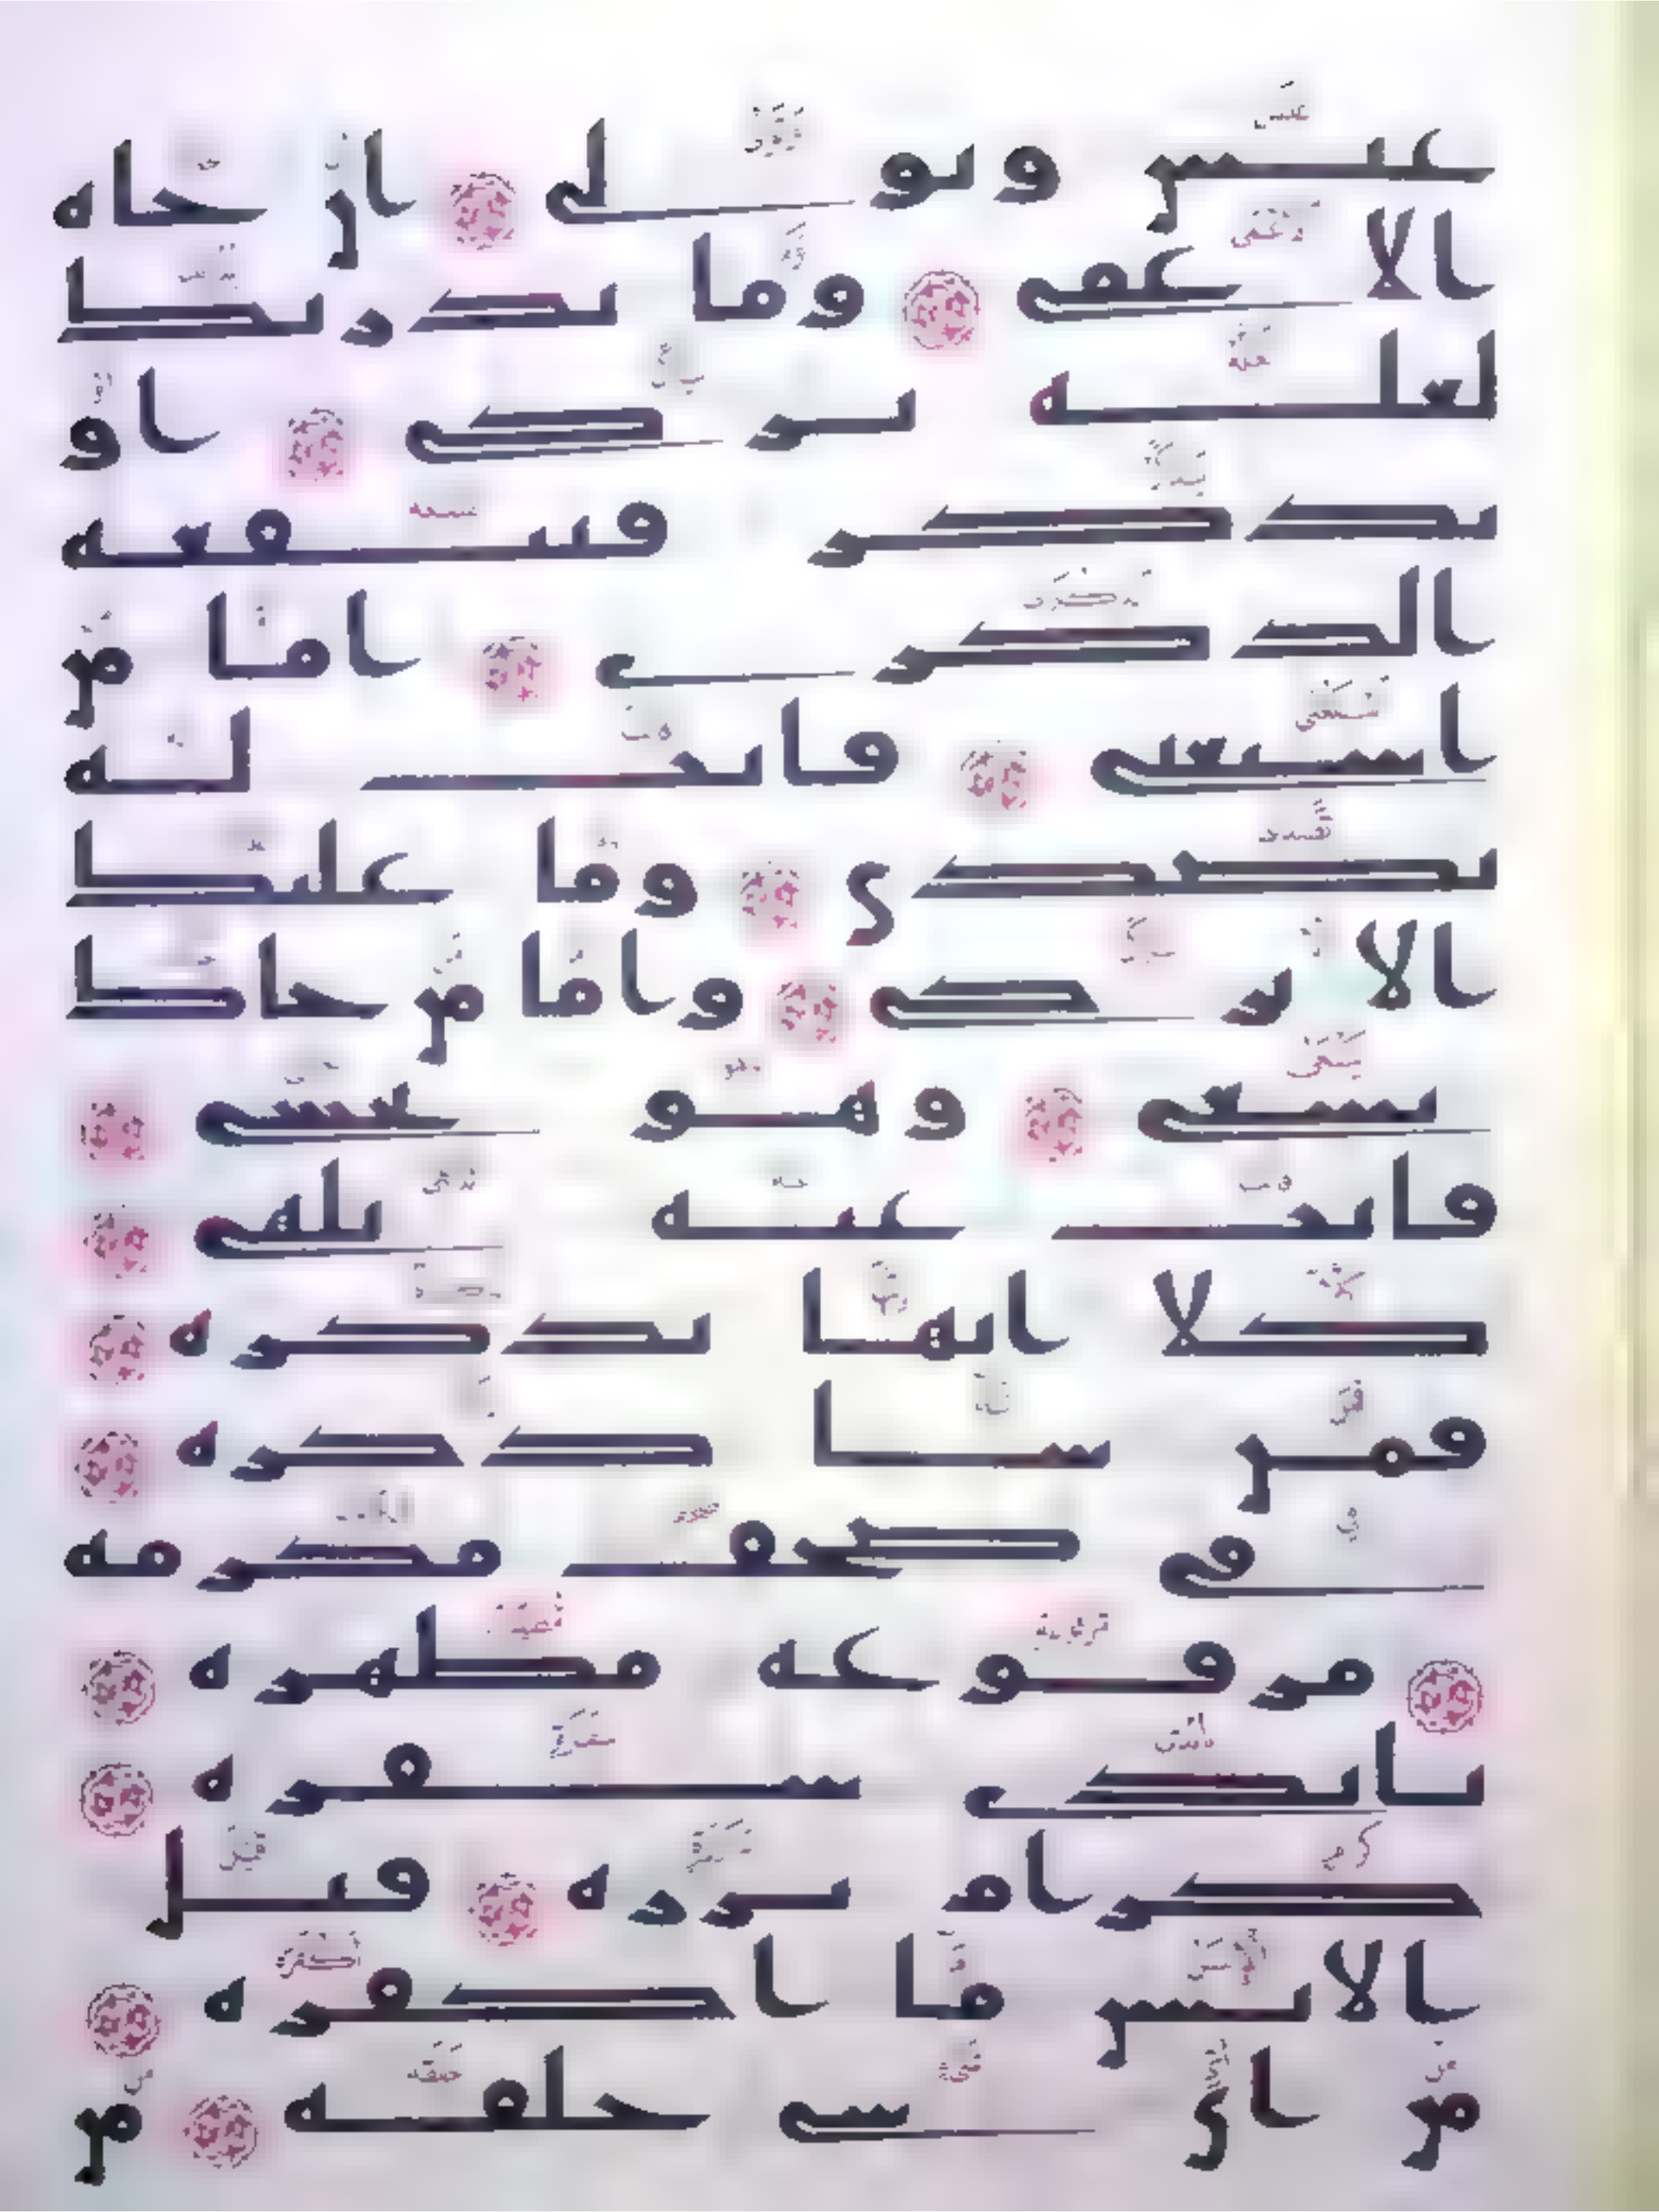 عبس وتولى ان جاه
الاعمى وما يدريك
لعله يزكى او
يذكر فتنفعه
الذكرى اما من
استغنى فانت له
تصدى وما عليك
الا يزكى واما من جاك
يسعى وهو يخشى
فانت عنه تلهى
كلا انها تذكره
فمن شا ذكره
فى صحف مكرمه
مرفوعه مطهره
بايدى سفره
كرام برره قتل
الانسن ما اكفره
من اى شى خلقه من